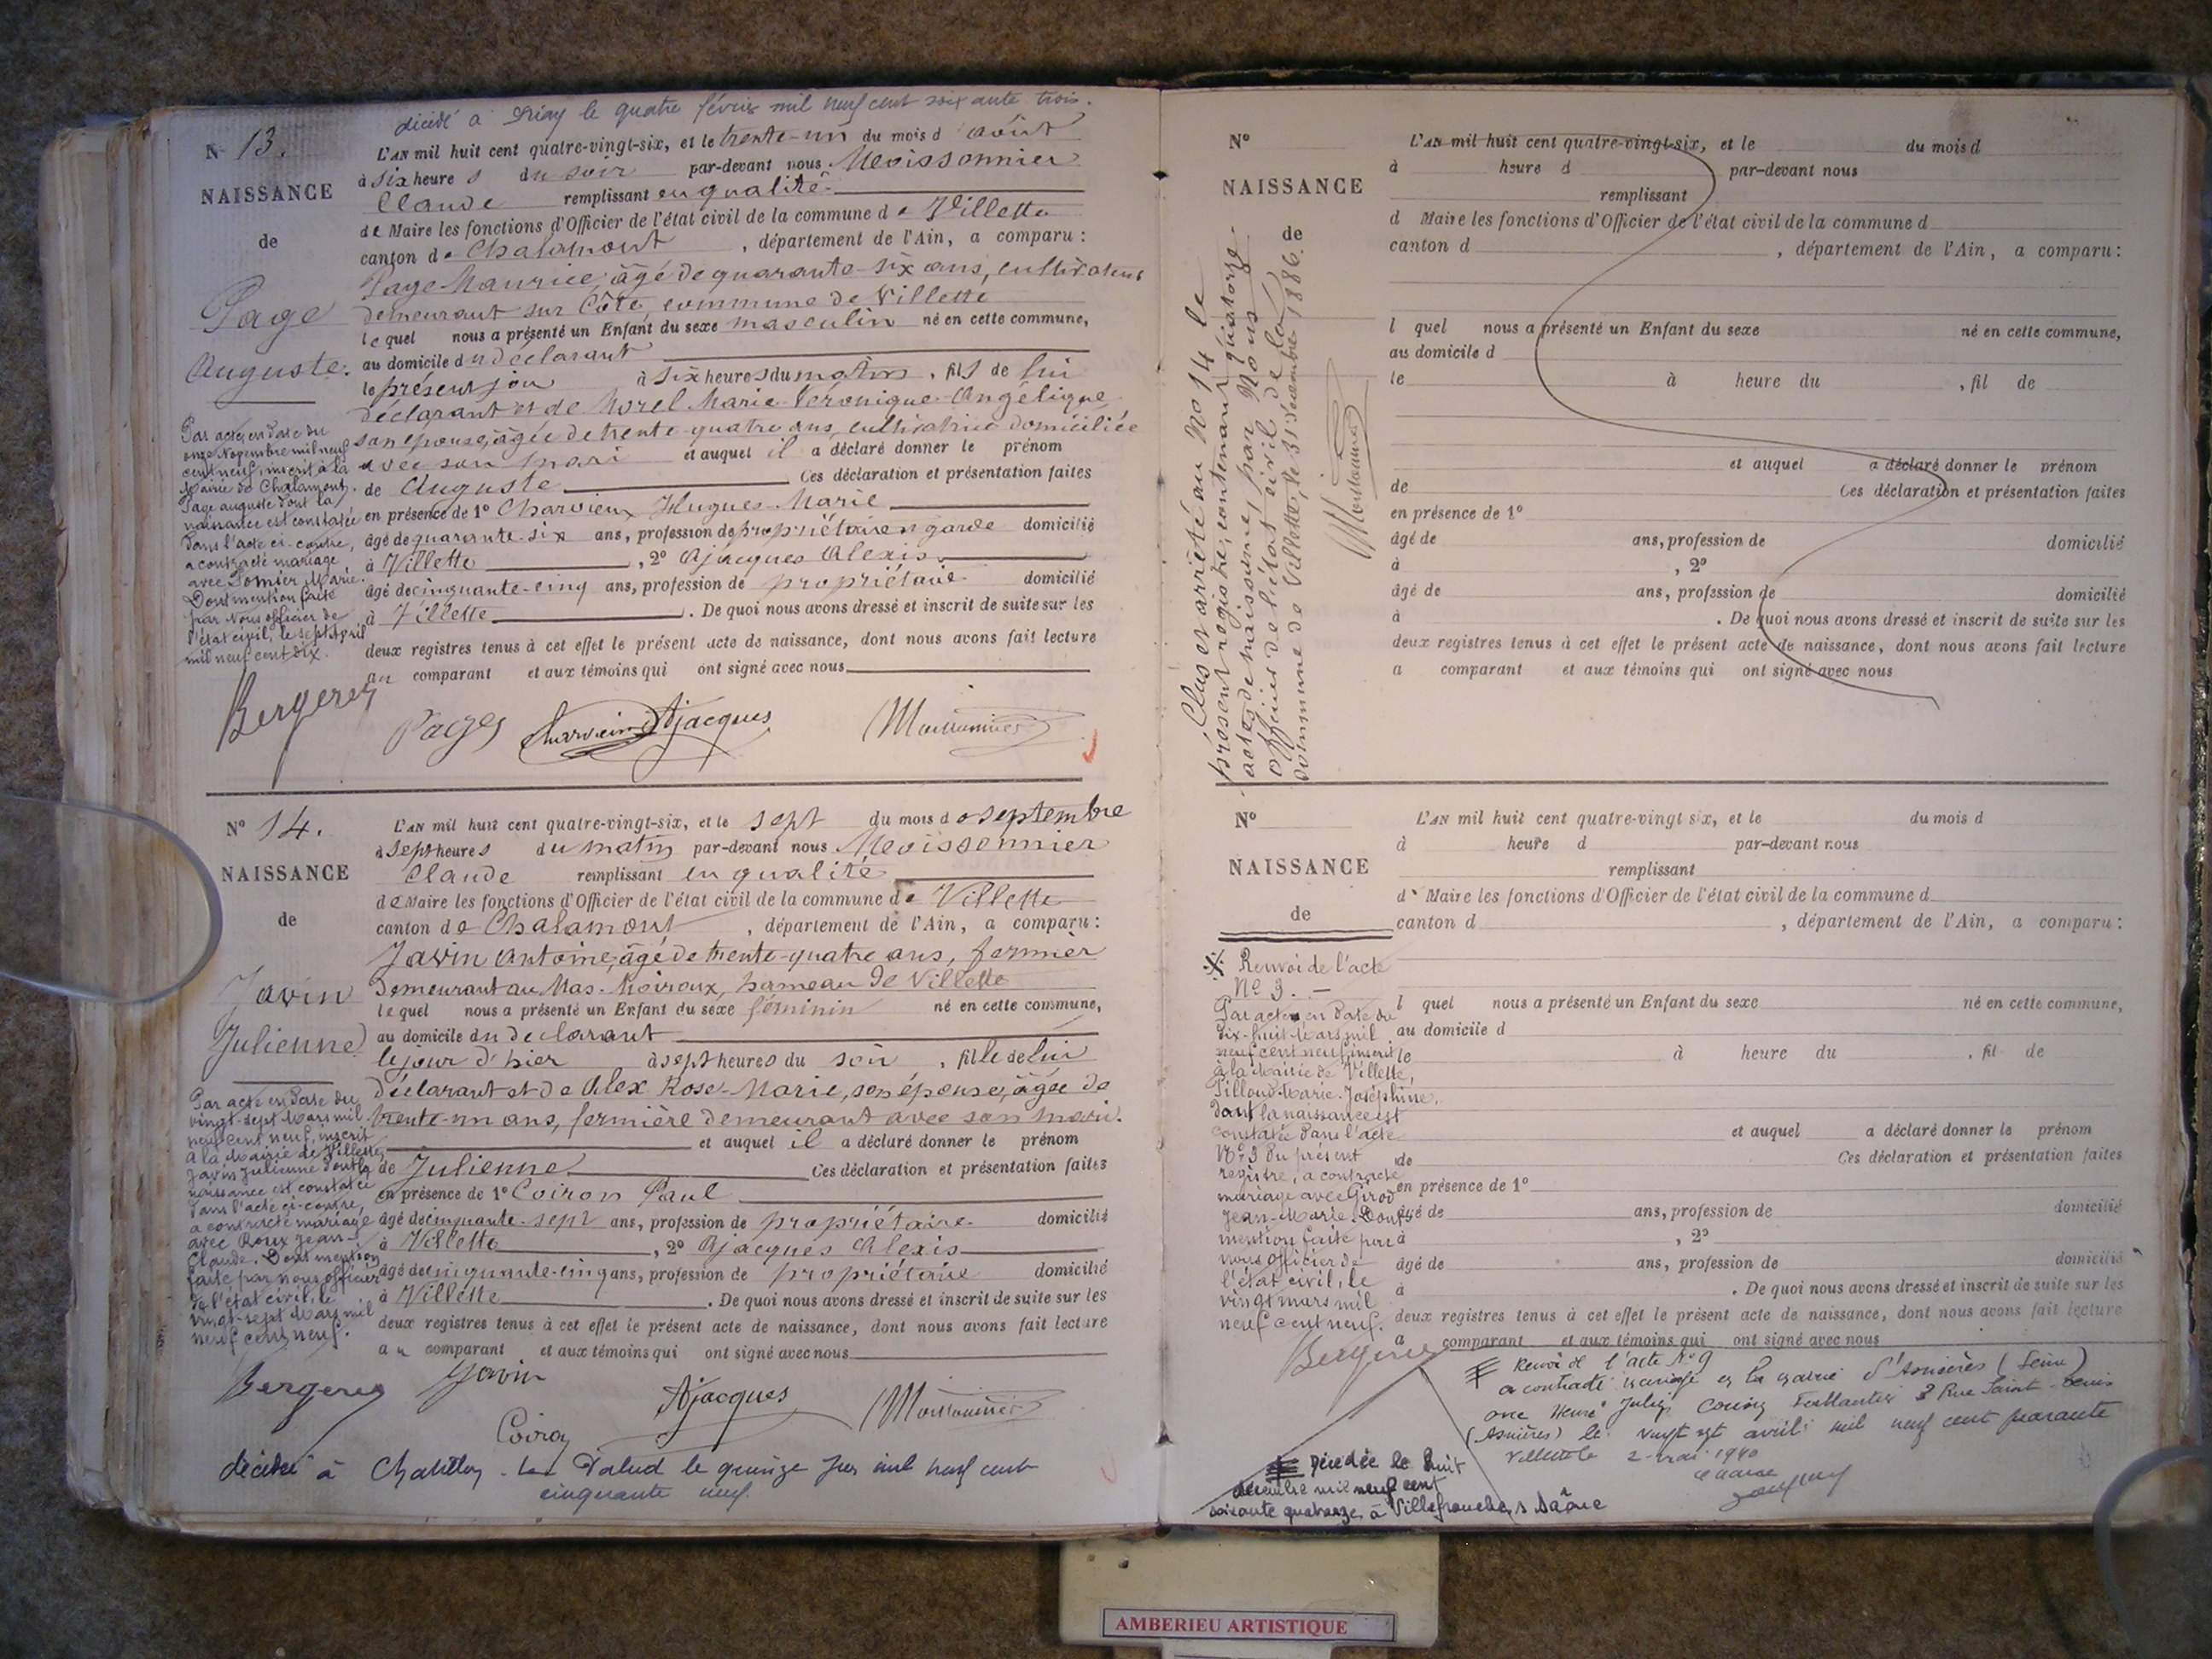 décédé à le quatre février mil neuf cent soixante trois.
N° 13.
NAISSANCE
de
Page
Auguste.
L'AN mil huit cent quatre-vingt-six, et le trente-un du mois d'août
à six heures du soir par-devant nous Moissonnier
Claude remplissant en qualité
de Maire les fonctions d'Officier de l'état civil de la commune de Villette
canton de Chalamont, département de l'Ain, a comparu:
Page Maurice, âgé de quarante-six ans, cultivateur
demeurant sur Côte, commune de Villette
lequel nous a présenté un Enfant du sexe masculin né en cette commune,
au domicile du déclarant
le présent jour à six heures du matin, fils de lui
déclarant et de Morel Marie Véronique Angélique
son épouse, âgée de trente-quatre ans, cultivatrice domiciliée
avec son mari et auquel il a déclaré donner le prénom
de Auguste Ces déclaration et présentation faites
en présence de 1° Charvieux Hugues Marie
âgé de quarante-six ans, profession de propriétaire garde domicilié
à Villette, 2° Ajacques Alexis
âgé de cinquante-cinq ans, profession de propriétaire domicilié
à Villette. De quoi nous avons dressé et inscrit de suite sur les
deux registres tenus à cet effet le présent acte de naissance, dont nous avons fait lecture
au comparant et aux témoins qui ont signé avec nous
Par acte en date du
onze Novembre mil neuf
cent neuf, inscrit à la
Mairie de Chalamont,
Page Auguste dont la
naissance est constatée
dans l'acte ci-contre,
a contracté mariage
avec Marie.
Dont mention faite
par Nous officier de
l'état civil, le sept avril
mil neuf cent dix.
Bergeret Pages Charvieux Ajacques Moissonnier
N° 14.
NAISSANCE
de
Javin
Julienne
L'AN mil huit cent quatre-vingt-six, et le sept du mois de septembre
à sept heures du matin par-devant nous Moissonnier
Claude remplissant en qualité
de Maire les fonctions d'Officier de l'état civil de la commune de Villette
canton de Chalamont, département de l'Ain, a comparu:
Javin Antoine, âgé de trente-quatre ans, fermier
demeurant au Mas-Noiroux, hameau de Villette
lequel nous a présenté un Enfant du sexe féminin né en cette commune,
au domicile du déclarant
le jour d'hier à sept heures du soir, fille de lui
déclarant et de Alex Rose-Marie, son épouse, âgée de
trente-un ans, fermière demeurant avec son mari.
et auquel il a déclaré donner le prénom
de Julienne Ces déclaration et présentation faites
en présence de 1° Coiron Paul
âgé de cinquante-sept ans, profession de propriétaire domicilié
à Villette, 2° Ajacques Alexis
âgé de cinquante-cinq ans, profession de propriétaire domicilié
à Villette. De quoi nous avons dressé et inscrit de suite sur les
deux registres tenus à cet effet le présent acte de naissance, dont nous avons fait lecture
au comparant et aux témoins qui ont signé avec nous
Par acte en date du
vingt-sept Mars mil
neuf cent neuf, inscrit
à la Mairie de Villette,
Javin Julienne dont la
naissance est constatée
dans l'acte ci-contre,
a contracté mariage
avec Roux Jean-
Claude. Dont mention
faite par nous officier
de l'état civil, le
vingt-sept Mars mil
neuf cent neuf.
Bergeret Javin Ajacques Moissonnier
Coiron
décédée à Chatillon-la Palud le quinze mil neuf cent
cinquante neuf.
Clos et arrêté au No 14 le
présent registre, contenant quatorze
actes de naissance, par Nous
officier de l'état civil de la
commune de Villette, le 31 Décembre 1886.
Moissonnier
N°
NAISSANCE
de
L'AN mil huit cent quatre-vingt-six, et le du mois d
à heure d par-devant nous
remplissant
d Maire les fonctions d'Officier de l'état civil de la commune d
canton d , département de l'Ain, a comparu:
l quel nous a présenté un Enfant du sexe né en cette commune,
au domicile d
le à heure du , fil de
et auquel a déclaré donner le prénom
de Ces déclaration et présentation faites
en présence de 1°
âgé de ans, profession de domicilié
à , 2°
âgé de ans, profession de domicilié
à . De quoi nous avons dressé et inscrit de suite sur les
deux registres tenus à cet effet le présent acte de naissance, dont nous avons fait lecture
a comparant et aux témoins qui ont signé avec nous
N°
NAISSANCE
de
L'AN mil huit cent quatre-vingt six, et le du mois d
à heure d par-devant nous
remplissant
d Maire les fonctions d'Officier de l'état civil de la commune d
canton d , département de l'Ain, a comparu:
l quel nous a présenté un Enfant du sexe né en cette commune,
au domicile d
le à heure du , fil de
et auquel a déclaré donner le prénom
de Ces déclaration et présentation faites
en présence de 1°
âgé de ans, profession de domicilié
à , 2°
âgé de ans, profession de domicilié
à . De quoi nous avons dressé et inscrit de suite sur les
deux registres tenus à cet effet le présent acte de naissance, dont nous avons fait lecture
a comparant et aux témoins qui ont signé avec nous
Renvoi de l'acte
N° 9. —
Par acte en date du
dix-huit Mars mil
neuf cent neuf, inscrit
à la Mairie de Villette,
Tilloud Marie-Joséphine,
dont la naissance est
constatée dans l'acte
N° 9 du présent
registre, a contracté
mariage avec Girod
Jean-Marie. Dont
mention faite par
nous officier de
l'état civil, le
vingt mars mil
neuf cent neuf.
Bergeret
Renvoi de l'acte N° 9
a contracté mariage en la mairie d'Asnières (Seine)
avec Henri Julien 3 Rue Saint-Denis
(Asnières) le vingt sept avril mil neuf cent quarante
Villette le 2 mai 1940
le maire
Décédée le huit
décembre mil neuf cent
soixante quatorze à Villefranche s Saône
AMBERIEU ARTISTIQUE